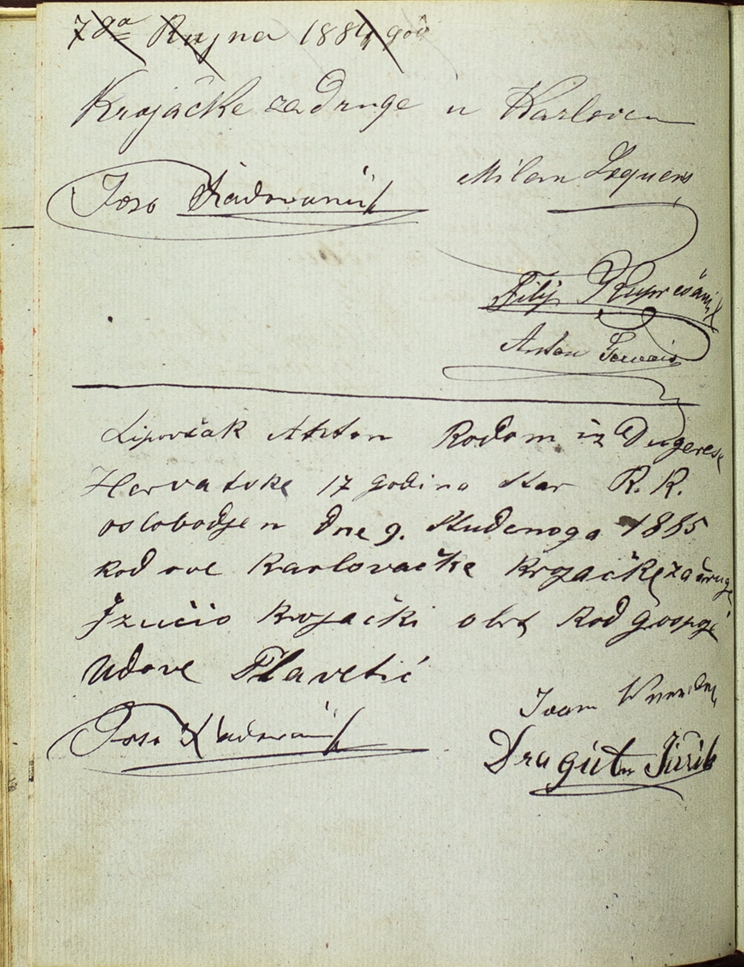 Rujna 1884 god
Krojačke zadruge u Karlovcu
Joso Radovanić Milan
Filip
Anton
Lipovčak Anton Rodom iz Dugerese
Hervatske 17 godina star R. K.
oslobodjen dne 9. Studenoga 1885
kod ove Karlovačke krojačke zadruge
Izučio krojački obrt kod gospoje
Udove Plavetić
Joso Radovanić
Dragutin